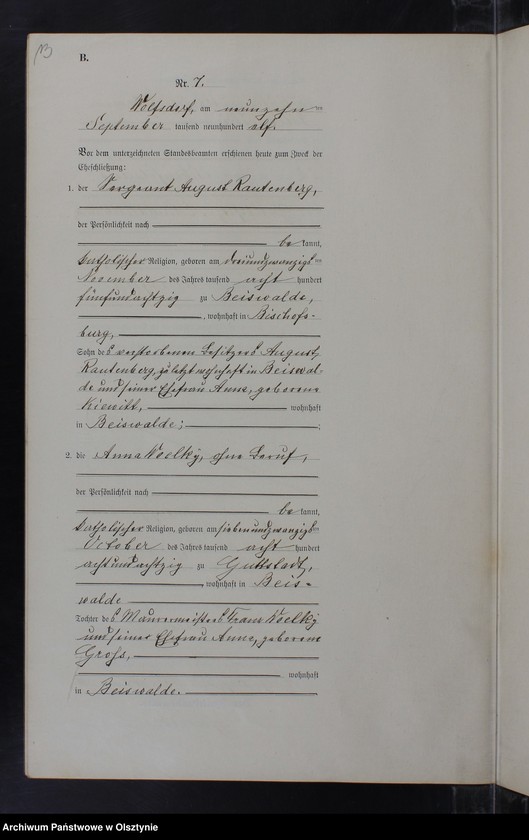 B.
Nr. 7.
Wolfsdorf, am neunzehnten
September tausend neunhundert elf.
Vor dem unterzeichneten Standesbeamten erschienen heute zum Zweck der
Eheschließung:
1. der Sergeant August Rautenberg,
der Persönlichkeit nach
bekannt,
katholischer Religion, geboren am dreiundzwanzigsten
November des Jahres tausend acht hundert
fünfundachtzig zu Beiswalde,
, wohnhaft in Bischofs-
burg,
Sohn des verstorbenen Besitzers August
Rautenberg, zuletzt wohnhaft in Beiswal-
de und seiner Ehefrau Anna, geborene
Kiewitt, wohnhaft
in Beiswalde;
2. die Anna Woelky, ohne Beruf,
der Persönlichkeit nach
bekannt,
katholischer Religion, geboren am siebenundzwanzigsten
October des Jahres tausend acht hundert
achtundachtzig zu Guttstadt,
, wohnhaft in Beis-
walde
Tochter des Maurermeisters Franz Woelky
und seiner Ehefrau Anna, geborene
Groß,
wohnhaft
in Beiswalde.
Archiwum Państwowe w Olsztynie